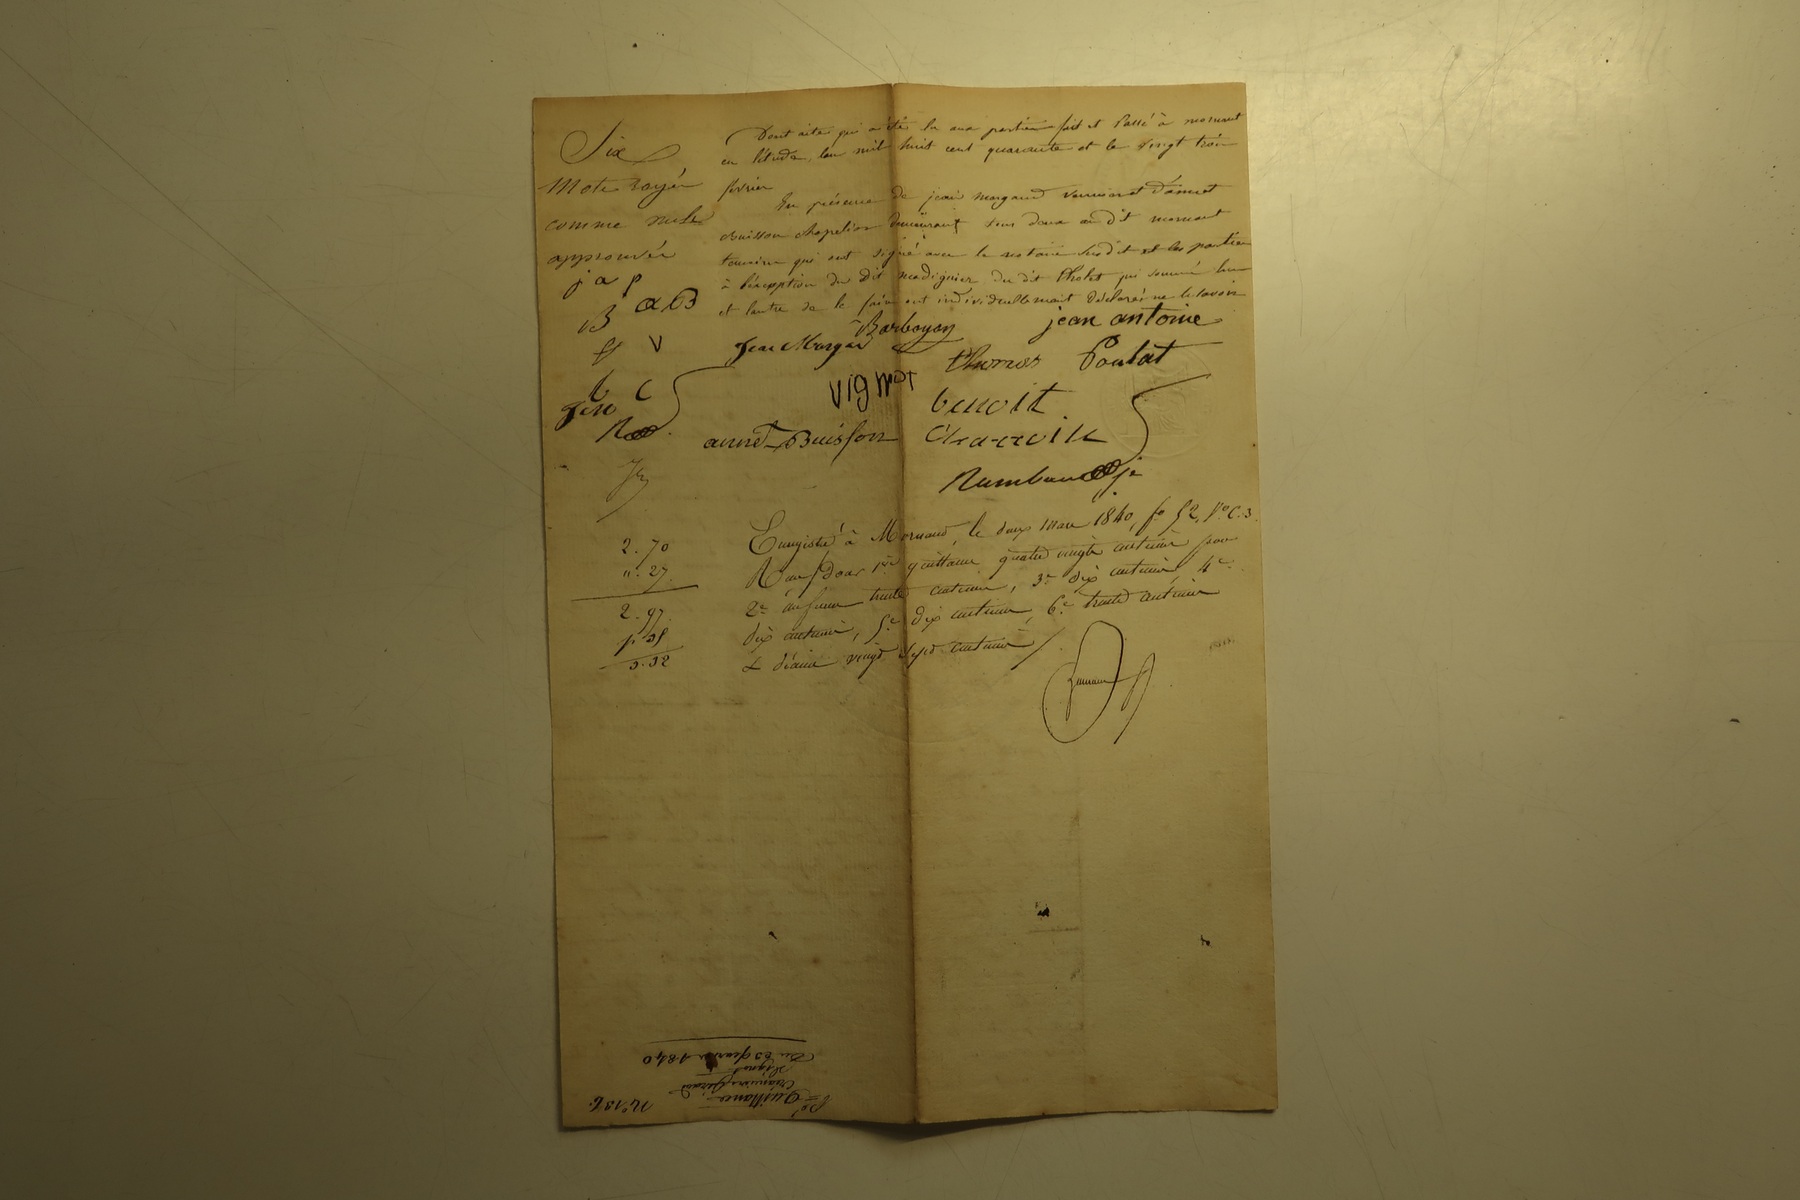 Six
Mots rayés
comme nuls
approuvés
j a p
B a B
V
b C
Dont acte qui a été lu aux parties fait et Passé à mornant
en l'étude, l'an mil huit cent quarante et le vingt trois
février
En présence de jean margand d'annet
Buisson chapelier demeurant tous deux au dit mornant
témoins qui ont signé avec le notaire susdit et les parties
à l'exception du dit du dit Cholet qui sommé l'un
et l'autre de le faire ont individuellement déclaré ne le savoir
Barboyon jean antoine
Jean Margan thomas Poulat
Vignot benoit
annet Buisson
Rambaud
2. 70
". 27
2. 97
Enregistré à Mornant, le deux Mars 1840, fo 52, Vo C. 3
Reçu pour 1ère quittance quatre vingts centimes pour
2e trente centimes, 3e dix centimes, 4e
dix centimes, 5e dix centimes, 6e trente centimes
& décime vingt sept centimes
Quittance
Vignot
Du 23 février 1840